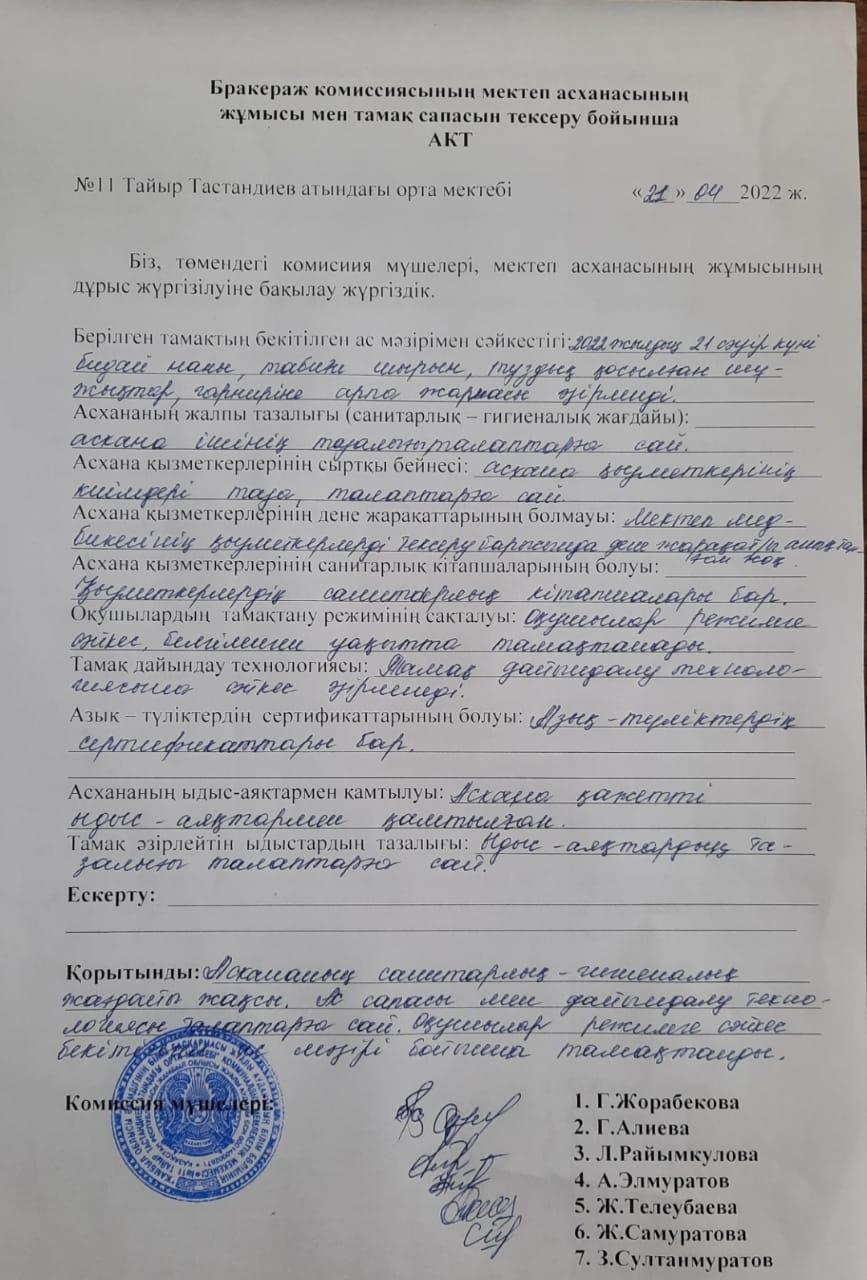 Бракераж комиссиясының мектеп асханасының
жұмысы мен тамақ сапасын тексеру бойынша
АКТ
№11 Тайыр Тастандиев атындағы орта мектебі «21» 04 2022 ж.
Біз, төмендегі комисиия мүшелері, мектеп асханасының жұмысының
дұрыс жүргізілуіне бақылау жүргіздік.
Берілген тамақтың бекітілген ас мәзірімен сәйкестігі: 2022 жылдың 21 сәуір күні
бидай наны, табиғи шырын, тұздық қосылған шұ-
жықтар, гарниріне арпа жармасы әзірленді.
Асхананың жалпы тазалығы (санитарлық – гигиеналық жағдайы):
асхана ішінің тазалығы талаптарға сай.
Асхана қызметкерлерінің сыртқы бейнесі: асхана қызметкерінің
киімдері таза, талаптарға сай.
Асхана қызметкерлерінің дене жарақаттарының болмауы: Мектеп мед-
бикесінің қызметкерлерді тексеру барысында дене жарақаттары анықтал-
ған жоқ.
Асхана қызметкерлерінің санитарлық кітапшаларының болуы:
Қызметкерлердің санитарлық кітапшалары бар.
Оқушылардың тамақтану режимінің сақталуы: Оқушылар режимге
сәйкес, белгіленген уақытта тамақтанады.
Тамақ дайындау технологиясы: Тамақ дайындалу техноло-
гиясына сәйкес әзірленеді.
Азық – түліктердің сертификаттарының болуы: Азық-түліктердің
сертификаттары бар.
Асхананың ыдыс-аяқтармен қамтылуы: Асхана қажетті
ыдыс-аяқтармен қамтылған.
Тамақ әзірлейтін ыдыстардың тазалығы: Ыдыс-аяқтардың та-
залығы талаптарға сай.
Ескерту:
Қорытынды: Асхананың санитарлық-гигиеналық
жағдайы жақсы. Ас сапасы мен дайындалу техно-
логиясы талаптарға сай. Оқушылар режимге сәйкес
ас мәзірі бойынша тамақтанды.
Комиссия мүшелері:
1. Г.Жорабекова
2. Г.Алиева
3. Л.Райымкулова
4. А.Элмуратов
5. Ж.Телеубаева
6. Ж.Самуратова
7. З.Султанмуратов